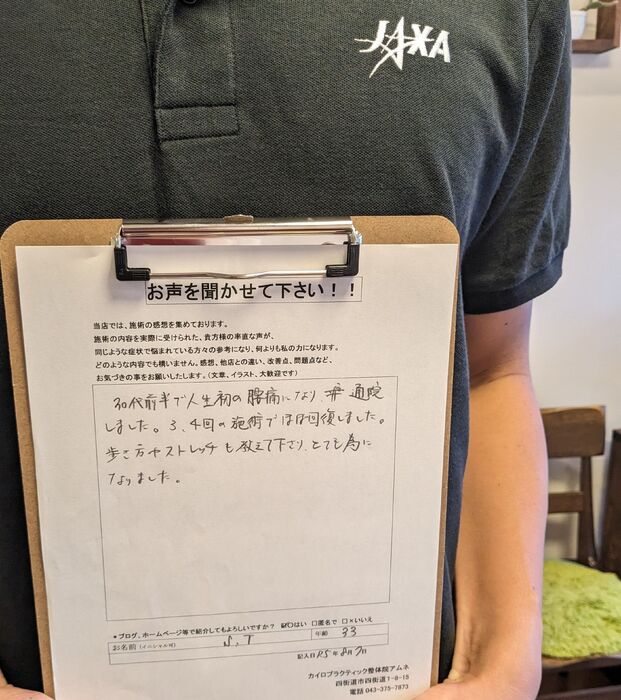 JAXA
お声を聞かせて下さい！！
当店では、施術の感想を集めております。
施術の内容を実際に受けられた、貴方様の率直な声が、
同じような症状で悩まれている方々の参考になり、何よりも私の力になります。
どのような内容でも構いません。感想、他店との違い、改善点、問題点など、
お気づきの事をお願いしたします。（文章、イラスト、大歓迎です）
30代前半で人生初の腰痛になり、通院
しました。3、4回の施術でほぼ回復しました。
歩き方やストレッチも教えて下さり、とても為に
なりました。
*ブログ、ホームページ等で紹介してもよろしいですか？ ☑○はい □匿名で □×いいえ
お名前（イニシャル可） S.T 年齢 33
記入日 R5年8月7日
カイロプラクティック整体院アムネ
四街道市四街道1-8-15
電話 043-375-7873